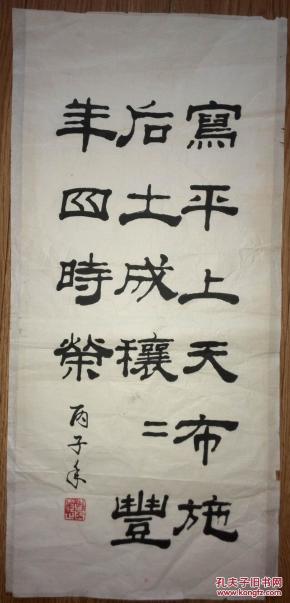 寫平上天布施
后土成穰〻豐
年四時榮
丙子年
孔夫子旧书网